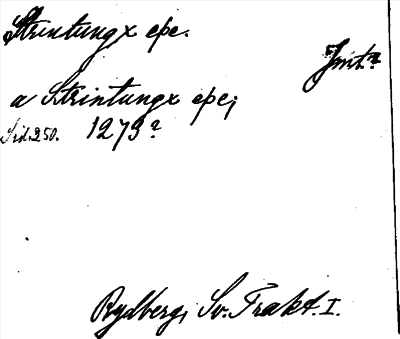 Strintungx epe.
Jmt.?
a Strintungx epe;
Sid. 250. 1273?
Rydberg, Sv. Trakt. I.